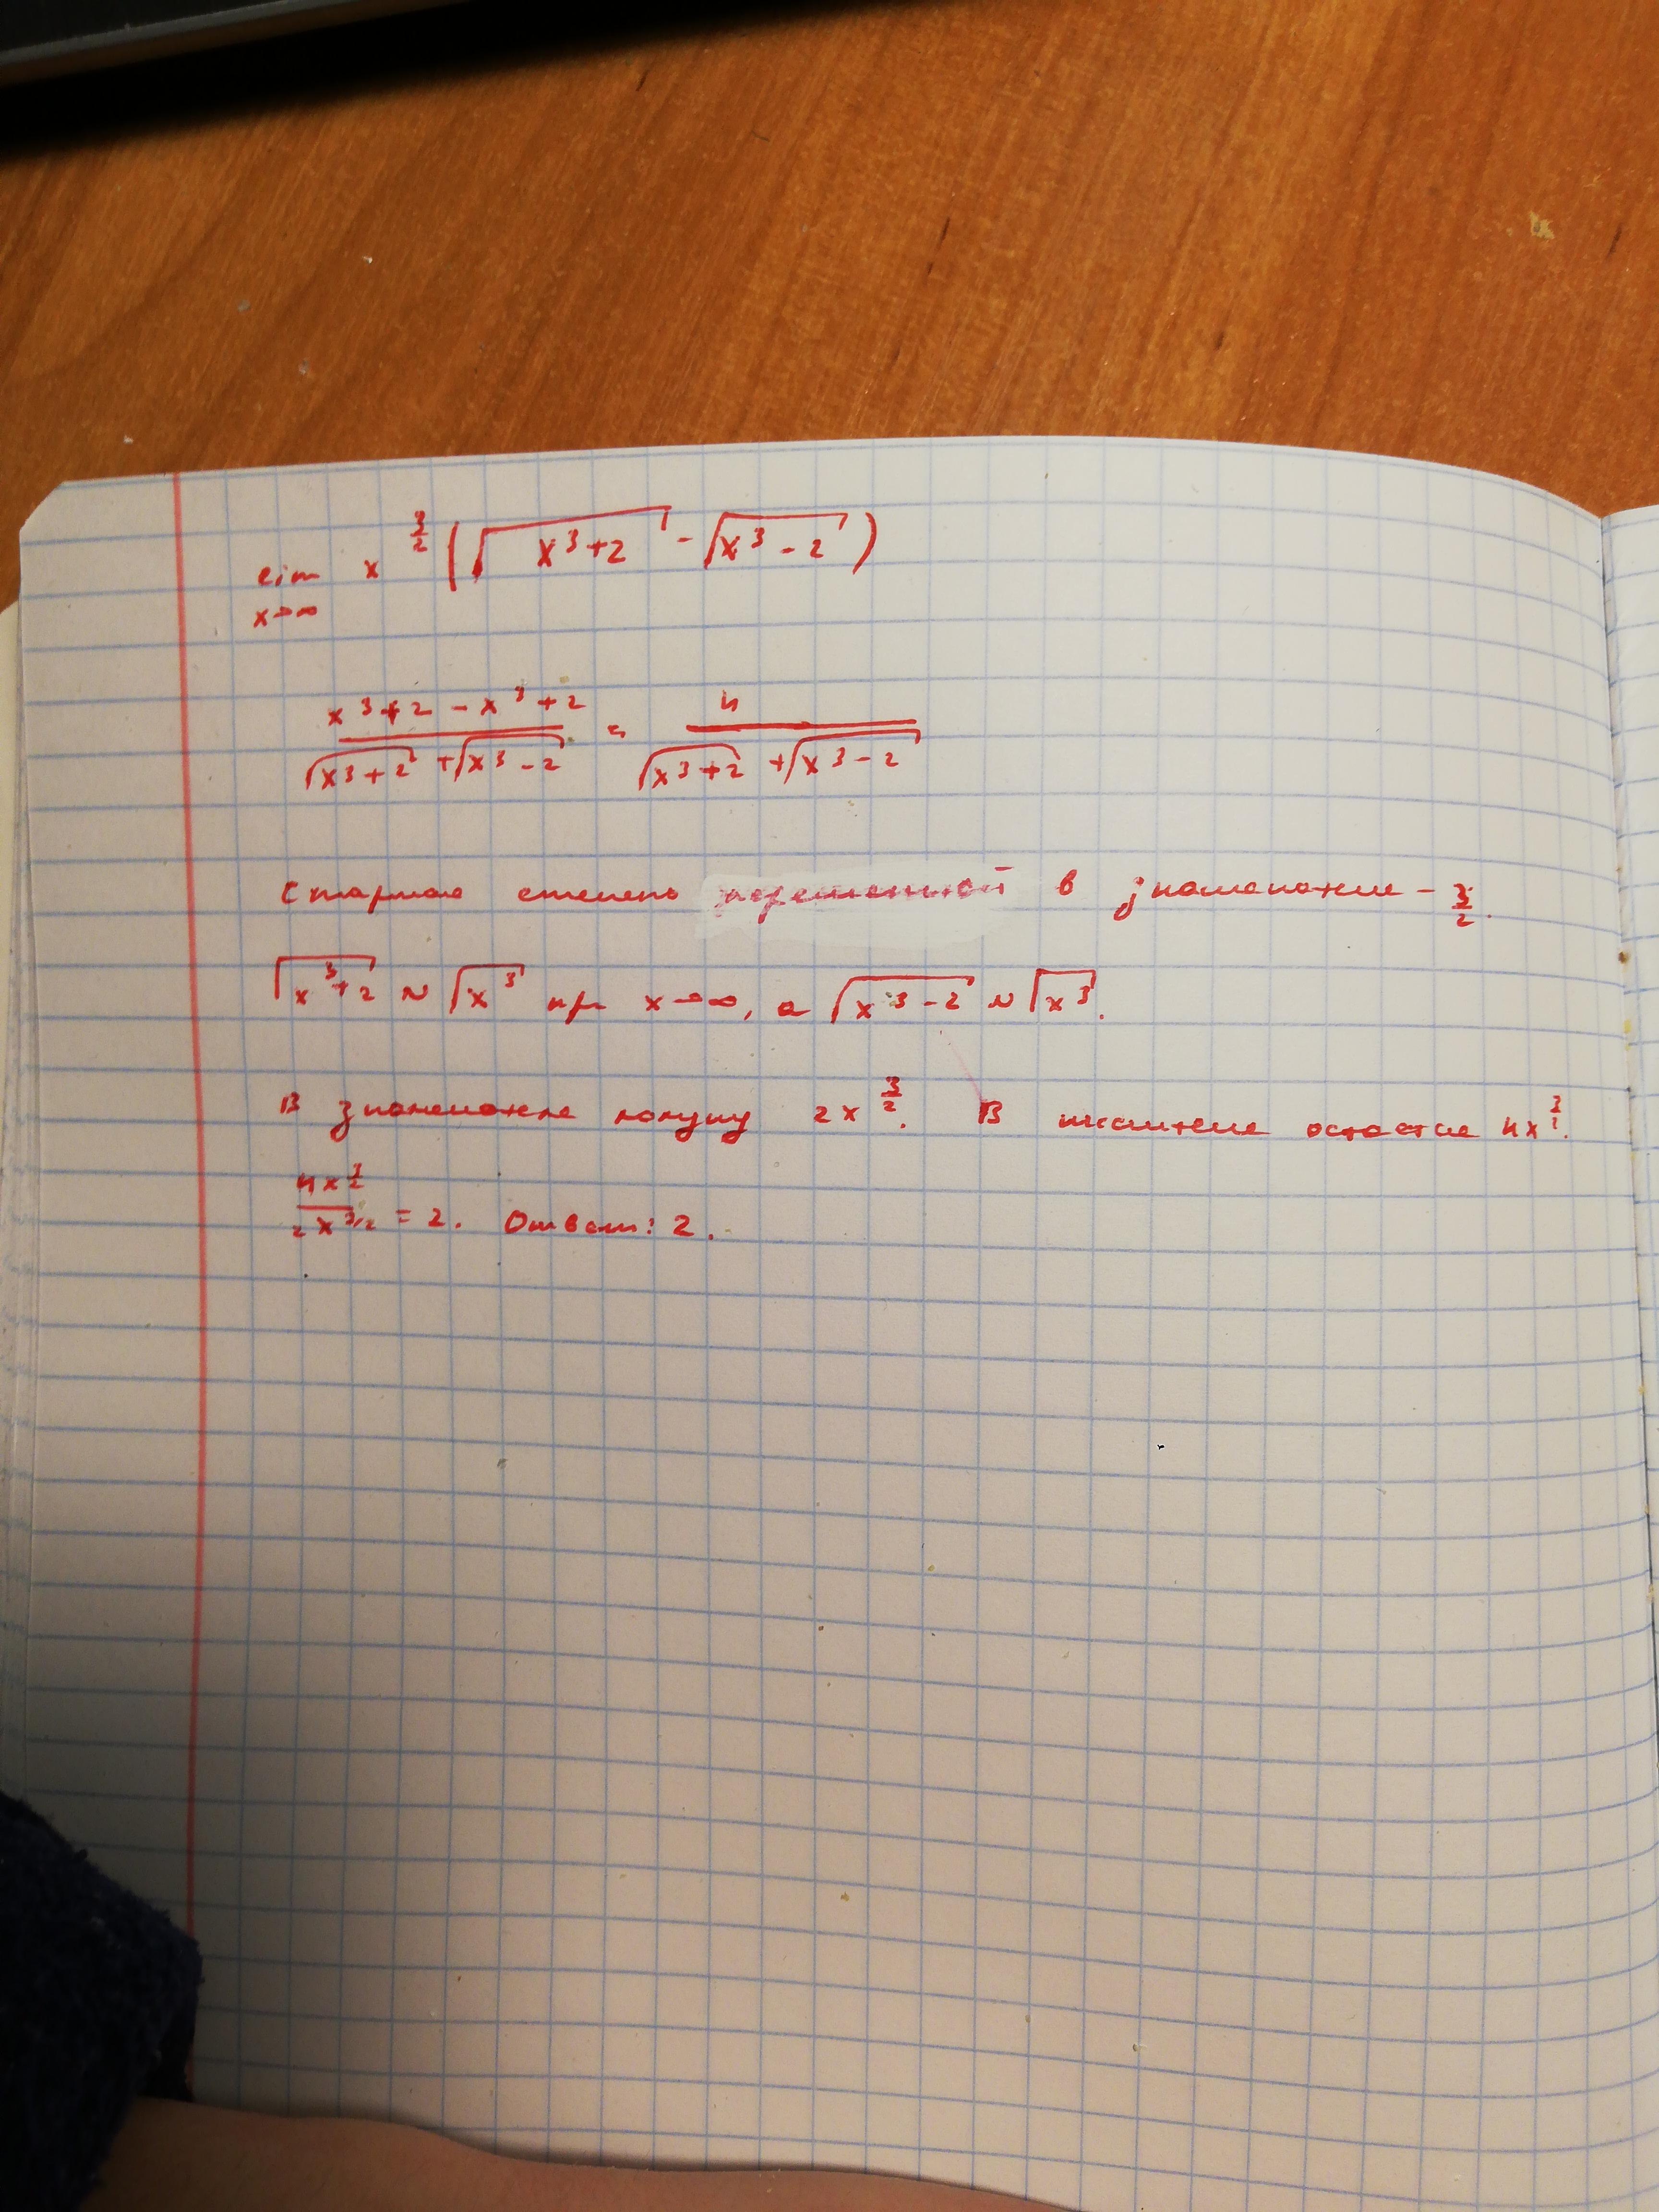 lim x^{3/2} (√(x³+2) - √(x³-2))
x→∞
(x³+2-x³+2)/(√(x³+2) + √(x³-2)) = 4/(√(x³+2) + √(x³-2))
Старшая степень переменной в знаменателе - 3/2.
√(x³+2) ~ √(x³) при x→∞, а √(x³-2) ~ √(x³).
В знаменателе получу 2x^{3/2}. В числителе остаётся 4x^{3/2}.
4x^{3/2}/2x^{3/2} = 2. Ответ: 2.